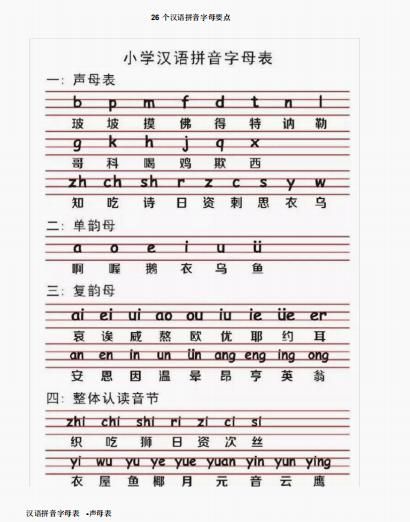 26 个汉语拼音字母要点
小学汉语拼音字母表
一：声母表
b p m f d t n l
玻 坡 摸 佛 得 特 讷 勒
g k h j q x
哥 科 喝 鸡 欺 西
zh ch sh r z c s y w
知 吃 诗 日 资 刺 思 衣 乌
二：单韵母
a o e i u ü
啊 喔 鹅 衣 乌 鱼
三：复韵母
ai ei ui ao ou iu ie üe er
哀 诶 威 熬 欧 优 耶 约 耳
an en in un ün ang eng ing ong
安 恩 因 温 晕 昂 亨 英 翁
四：整体认读音节
zhi chi shi ri zi ci si
织 吃 狮 日 资 次 丝
yi wu yu ye yue yuan yin yun ying
衣 屋 鱼 椰 月 元 音 云 鹰
汉语拼音字母表 •声母表